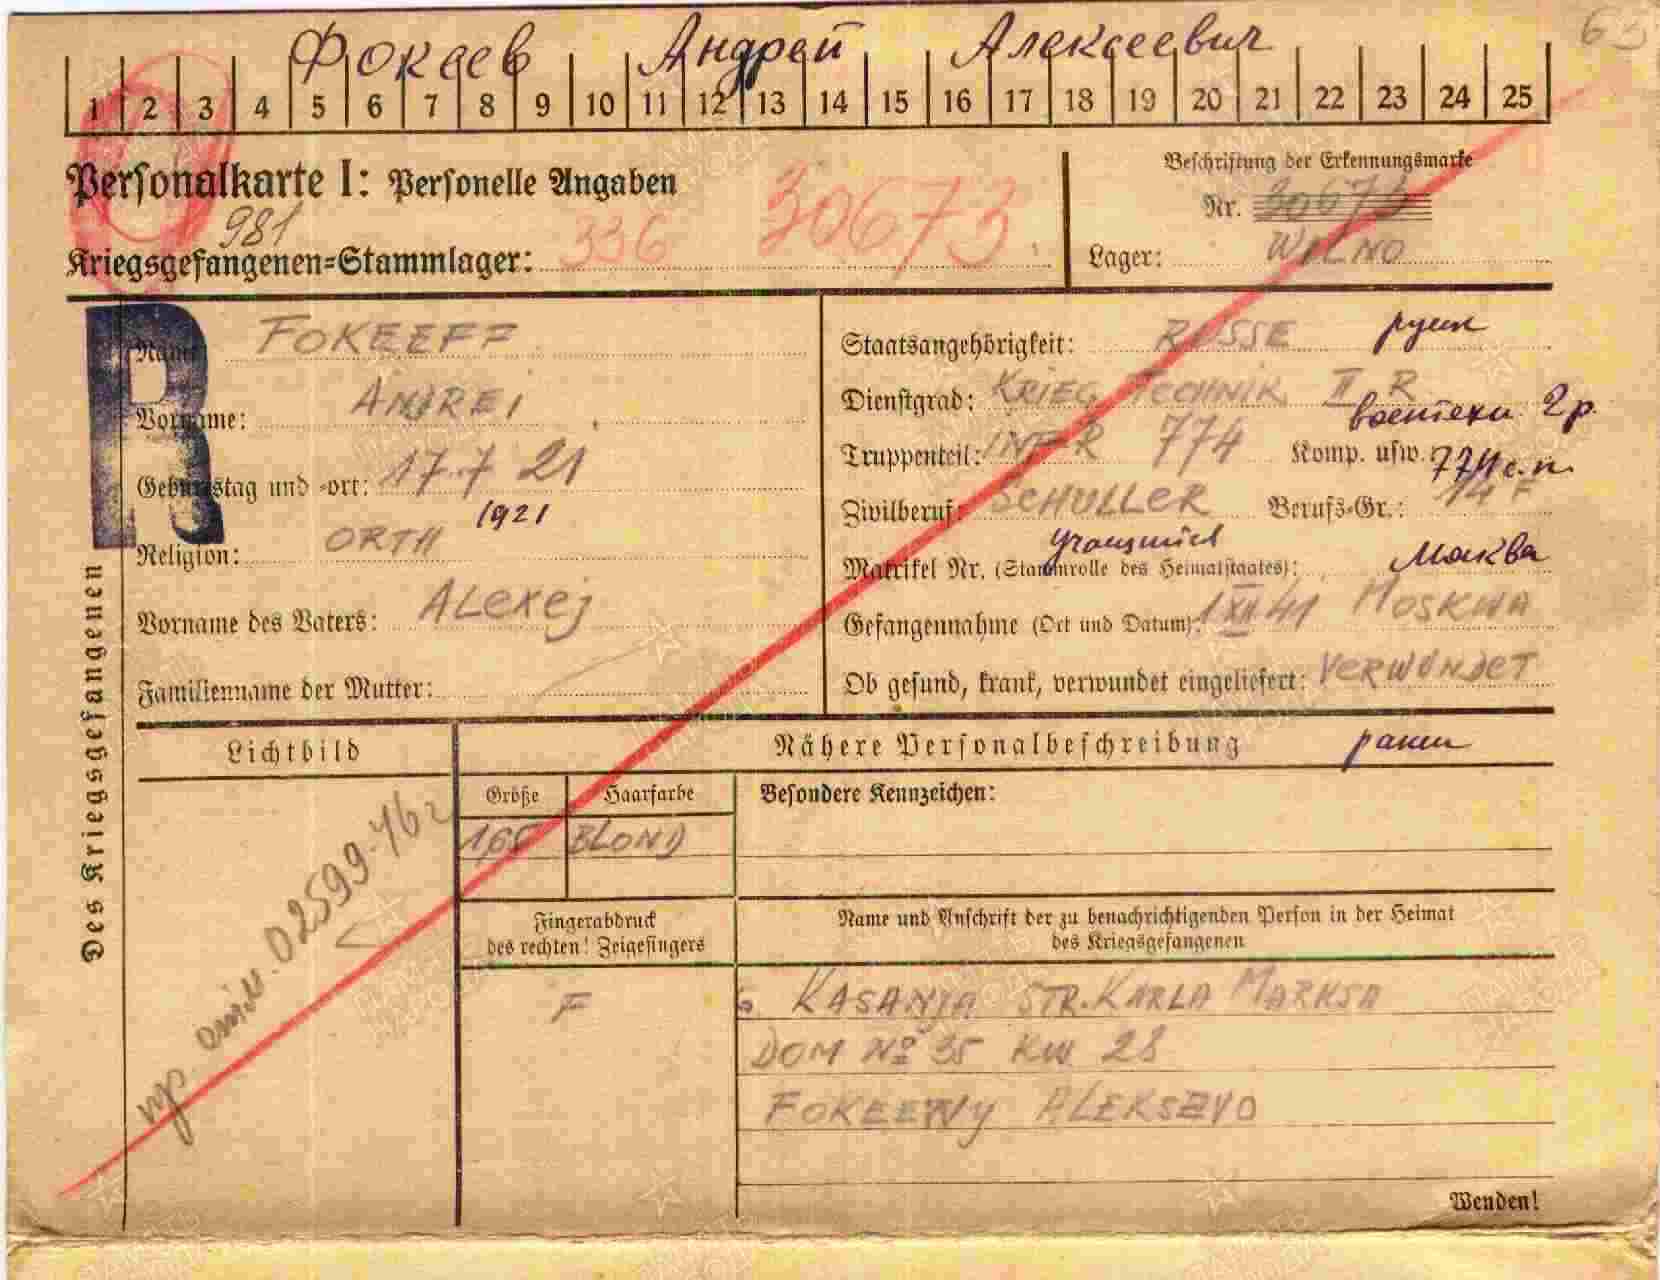 Фокеев Андрей Алексеевич 63
1 2 3 4 5 6 7 8 9 10 11 12 13 14 15 16 17 18 19 20 21 22 23 24 25
Personalkarte I: Personelle Angaben
Beschriftung der Erkennungsmarke
Nr. 30673
981
Kriegsgefangenen=Stammlager: 336 30673
Lager: WILNO
R
Des Kriegsgefangenen
Name: FOKEEFF
Vorname: ANDREI
Geburtstag und -ort: 17.7 21
1921
Religion: ORTH
Vorname des Vaters: ALEXEJ
Familienname der Mutter:
Staatsangehörigkeit: RUSSE русск
Dienstgrad: KRIEG TECHNIK II R
воентехн. 2 р.
Truppenteil: INF R 774 Komp. usw.: 774 с.п.
Zivilberuf: SCHULLER Berufs-Gr.: 14 F
учащийся
Matrikel Nr. (Stammrolle des Heimatstaates): Москва
Gefangennahme (Ort und Datum): 1 XII 41 MOSKWA
Ob gesund, krank, verwundet eingeliefert: VERWUNDET
Lichtbild
Nähere Personalbeschreibung ранен
Größe Haarfarbe Besondere Kennzeichen:
BLOND
02599-46г
Fingerabdruck
des rechten! Zeigefingers
F
Name und Anschrift der zu benachrichtigenden Person in der Heimat
des Kriegsgefangenen
G. KASANJA STR. KARLA MARKSA
DOM № 35 KW 28
FOKEEWY ALEKSEYO
Wenden!